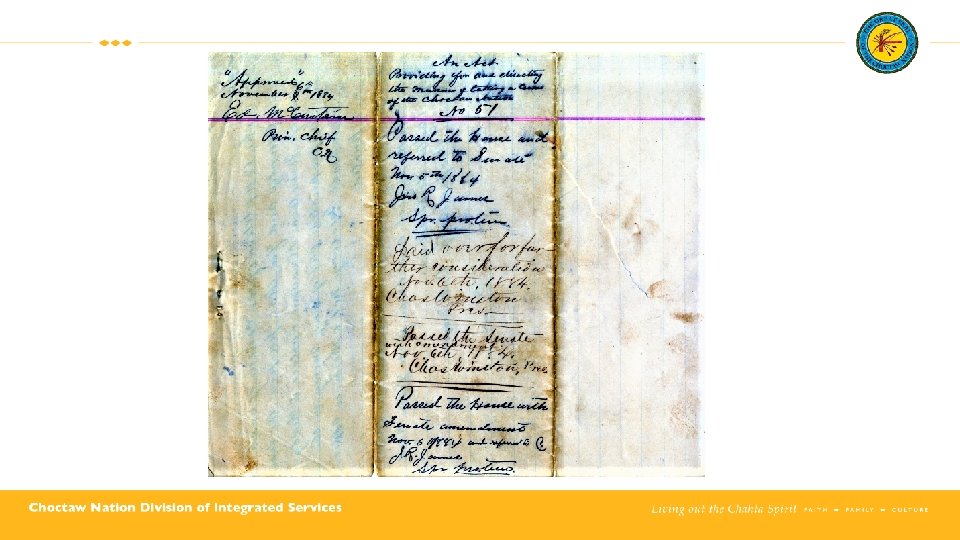 "Approved"
November 6th 1884
Ed. McCurtain
Prin. Chief
C.N.
An Act
Providing for and directing
the manner of taking a Census
of the Choctaw Nation
No 51
Passed the House and
referred to Senate
Nov 5th 1884
Jno R. James
Spr. protem
Laid over for fur-
ther consideration
Nov. 6th, 1884.
Chas Winston
Pres.
Passed the Senate
with amendment
Nov. 6th, 1884.
Chas Winston, Pres
Passed the House with
Senate amendment
Nov 6 1884 and
J. R. James
Spr protem
Choctaw Nation Division of Integrated Services
Living out the Chahta Spirit FAITH FAMILY CULTURE